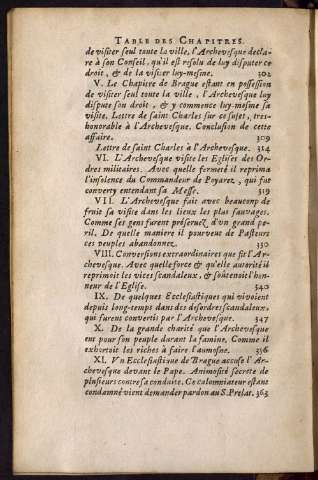 TABLE DES CHAPITRES.
de visiter seul toute la ville, l'Archevesque decla-
re à son Conseil, qu'il est resolu de luy disputer ce
droit, & de la visiter luy-mesme. 302
V. Le Chapitre de Brague estant en possession
de visiter seul toute la ville, l'Archevesque luy
dispute son droit, & y commence luy-mesme sa
visite. Lettre de saint Charles sur ce sujet, tres-
honorable à l'Archevesque. Conclusion de cette
affaire. 309
Lettre de saint Charles à l'Archevesque. 314
VI. L'Archevesque visite les Eglises des Or-
dres militaires. Avec quelle fermeté il reprima
l'insolence du Commandeur de Poyarez, qui fut
converty entendant sa Messe. 319
VII. L'Archevesque fait avec beaucoup de
fruit sa visite dans les lieux les plus sauvages.
Comme ses gens furent preservez d'un grand pe-
ril. De quelle maniere il pourveut de Pasteurs
ces peuples abandonnez. 330
VIII. Conversions extraordinaires que fit l'Ar-
chevesque. Avec quelle force & quelle autorité il
reprimoit les vices scandaleux, & soûtenoit l'hon-
neur de l'Eglise. 340
IX. De quelques Ecclesiastiques qui vivoient
depuis long-temps dans des desordres scandaleux,
qui furent convertis par l'Archevesque. 347
X. De la grande charité que l'Archevesque
eut pour son peuple durant la famine. Comme il
exhortoit les riches à faire l'aumosne. 356
XI. Vn Ecclesiastique de Brague accuse l'Ar-
chevesque devant le Pape. Animosité secrete de
plusieurs contre sa conduite. Ce calomniateur estant
condamné vient demander pardon au S. Prelat. 363